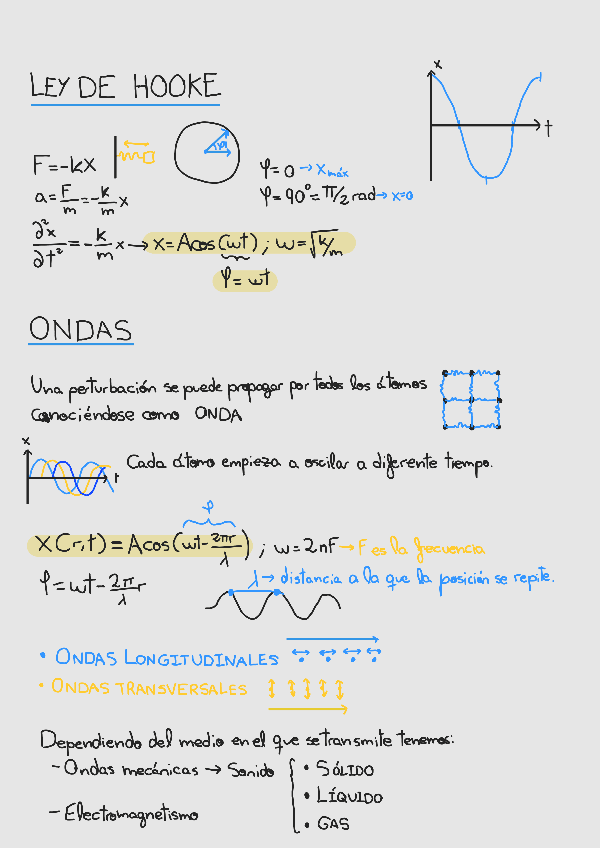 LEY DE HOOKE
x
t
F=-kx
φ=0 → xmáx
a=F/m=-k/m x
φ=90°=π/2 rad → x=0
∂²x/∂t²=-k/m x → x=Acos(wt); w=√k/m
φ=wt
ONDAS
Una perturbación se puede propagar por todos los átomos
conociéndose como ONDA
x
t
Cada átomo empieza a oscilar a diferente tiempo.
φ
X(r,t)=Acos(wt-2πr/λ); w=2πF → F es la frecuencia
φ=wt-2π/λ r
λ → distancia a la que la posición se repite.
• ONDAS LONGITUDINALES
• ONDAS TRANSVERSALES
Dependiendo del medio en el que se transmite tenemos:
- Ondas mecánicas → Sonido
• SÓLIDO
• LÍQUIDO
- Electromagnetismo
• GAS